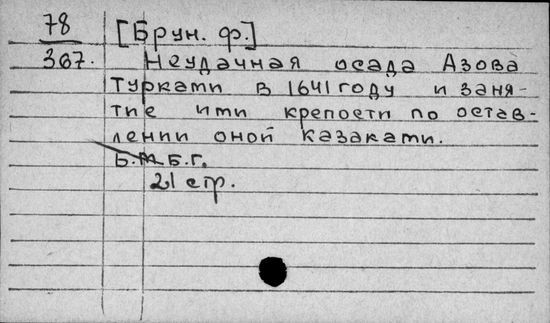 78
367.
[Брун. Ф.]
Неудачная осада Азова
Турками в 1641 году и заня-
тие ими крепости по остав-
лении оной казаками.
Б.М. Б.Г.
21 стр.